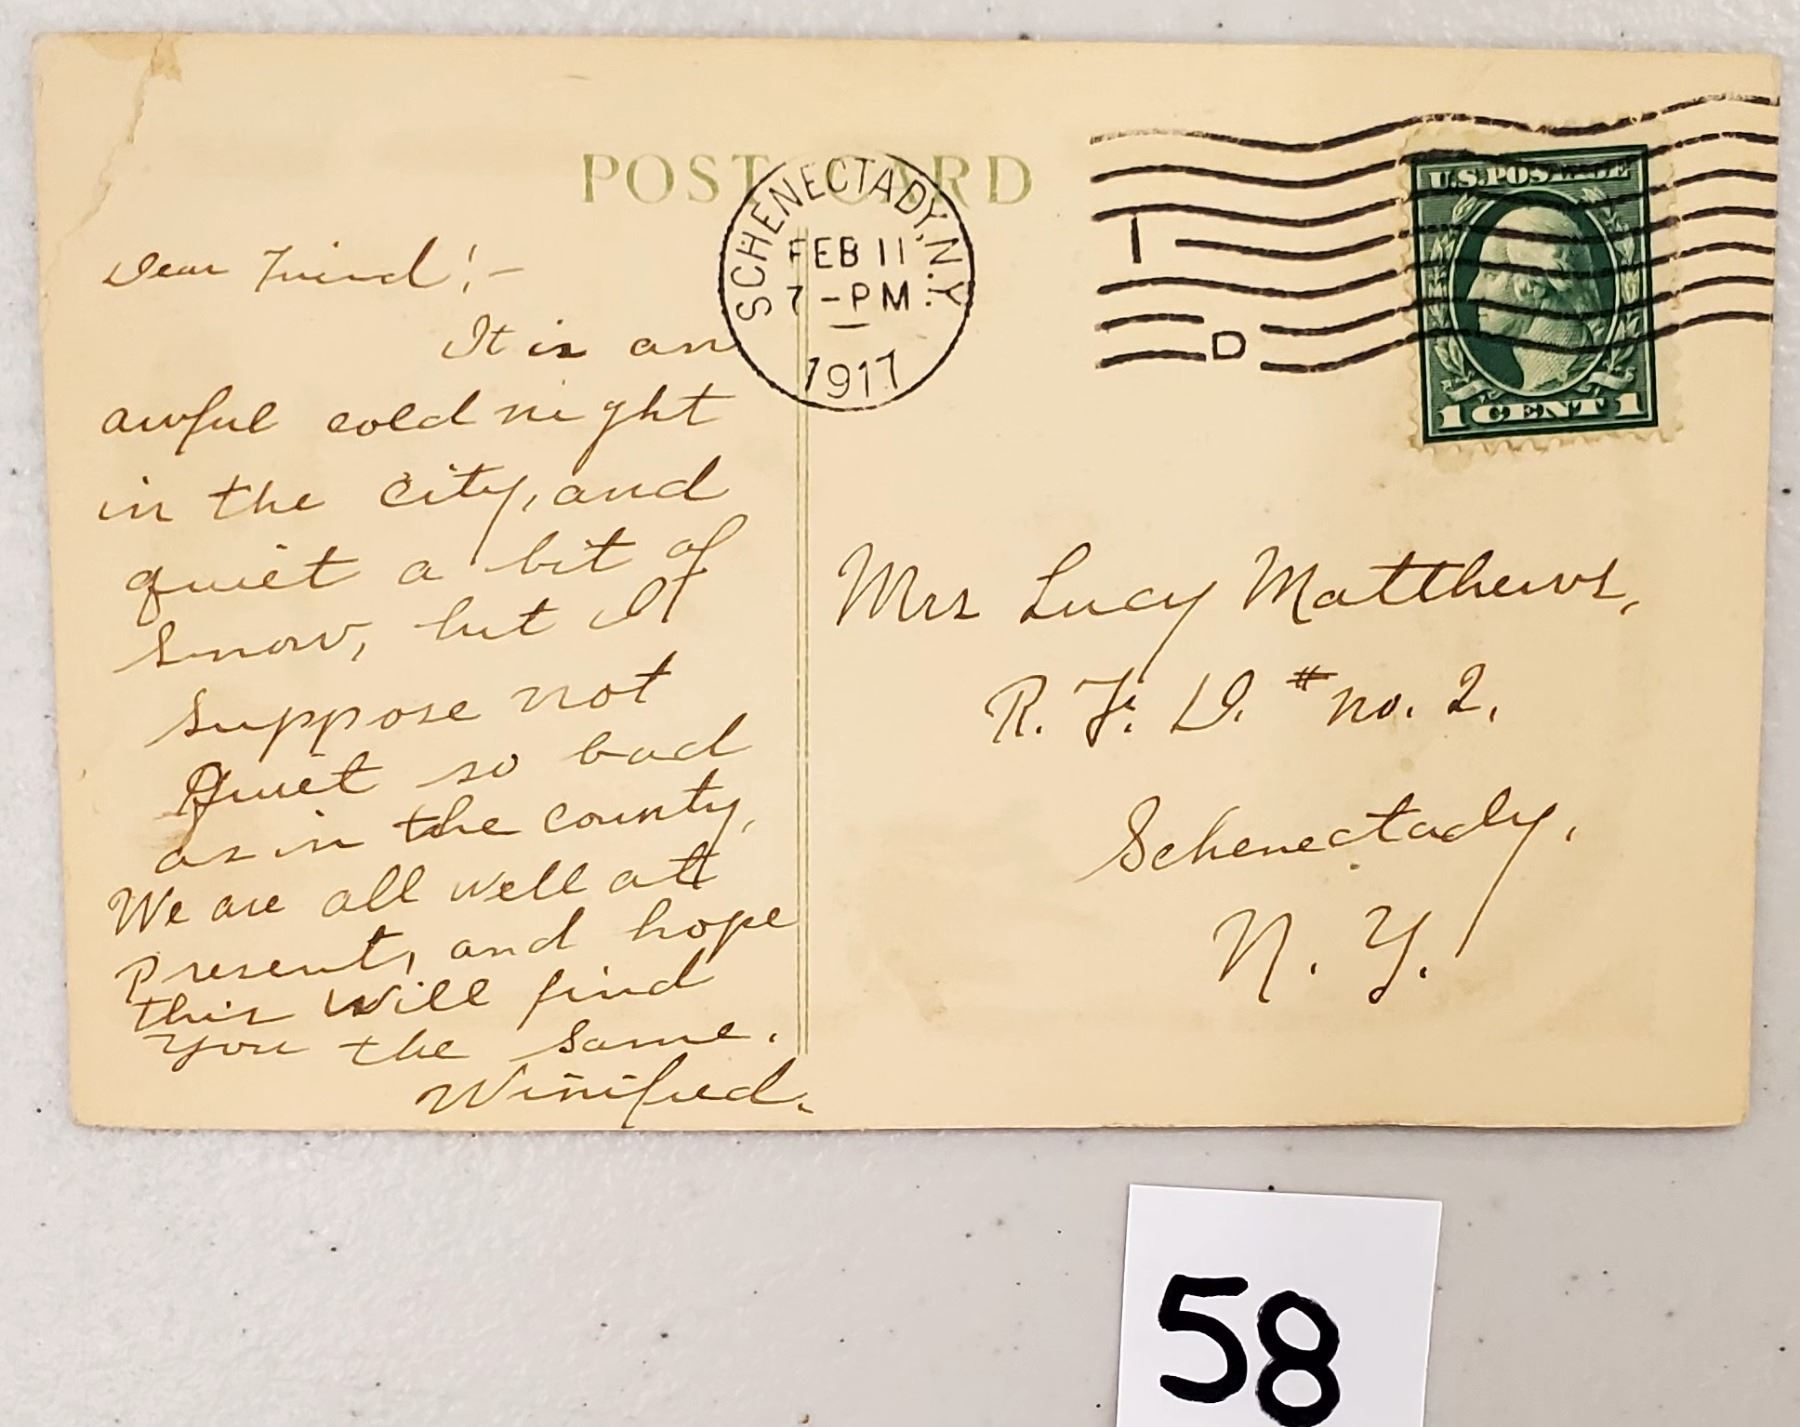 POST CARD
SCHENECTADY, N.Y.
FEB 11
7-PM
1917
1
D
U.S. POSTAGE
1 CENT 1
Dear Friend!-
It is an
awful cold night
in the city, and
quiet a bit of
snow, but I
suppose not
Quiet so bad
as in the county,
We are all well att
present, and hope
this will find
you the same.
Winifred.
Mrs Lucy Matthews,
R. F. D. # no. 2,
Schenectady,
N. Y.
58